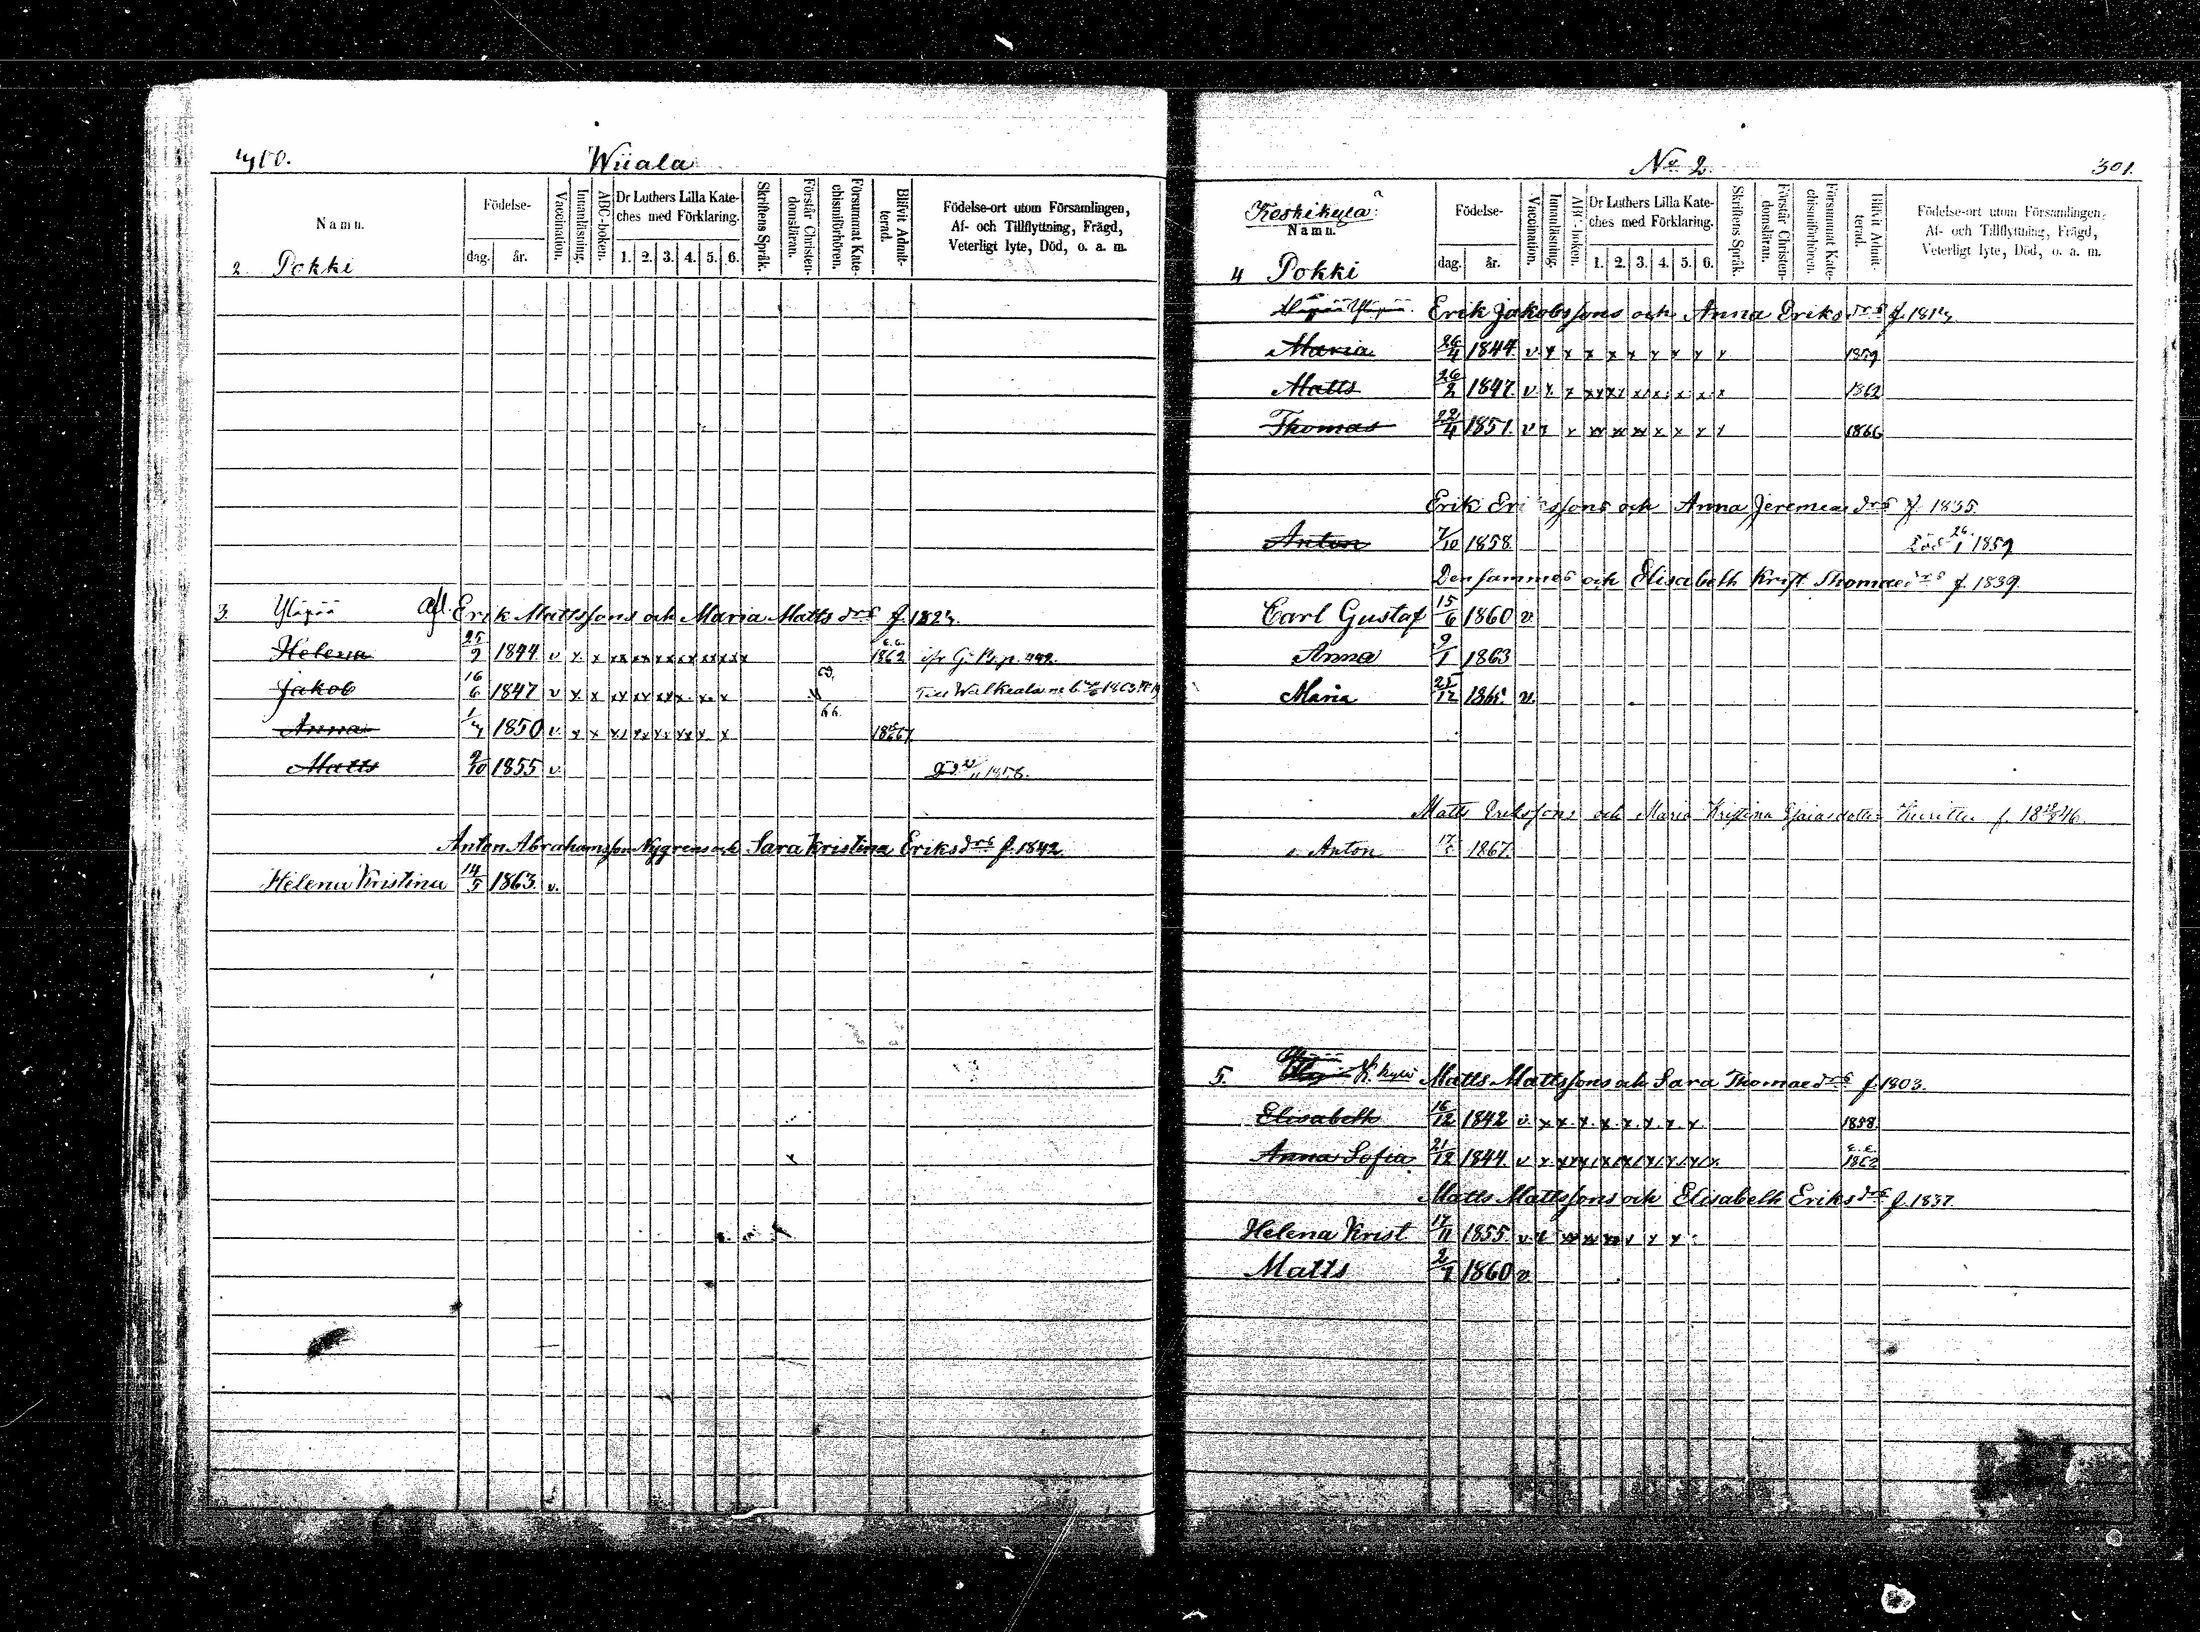 Wiiala
Namn.
Födelse-
dag.
år.
Vaccination.
Innanläsning.
ABC-boken.
Dr Luthers Lilla Kate-
ches med Förklaring.
1. 2. 3. 4. 5. 6.
Skriftens Språk.
Förstår Christen-
domsläran.
Försummat Kate-
chismiförhören.
Blifvit Admit-
terad.
Födelse-ort utom Församlingen,
Af- och Tillflyttning, Frägd,
Veterligt lyte, Död, o. a. m.
2. Pokki
3. Yläpää Erik Mattssons och Maria Matts drs
Helena 25/9 1844 v x x xx xx xx xx xx xx 1862
Jakob 16/6 1847 v x x xx xx xx x. x. x
Anna 1850 v. x x x x
Matts 9/10 1855 v.
Anton Abrahamsson Nygrens och Sara Kristina Eriks drs f. 1842
Helena Kristina 14/5 1863 v.
No 2.
301.
Keskikylä
Namn.
Födelse-
dag.
år.
Vaccination.
Innanläsning.
ABC-boken.
Dr Luthers Lilla Kate-
ches med Förklaring.
1. 2. 3. 4. 5. 6.
Skriftens Språk.
Förstår Christen-
domsläran.
Försummat Kate-
chismiförhören.
Blifvit Admit-
terad.
Födelse-ort utom Församlingen,
Af- och Tillflyttning, Frägd,
Veterligt lyte, Död, o. a. m.
4 Pokki
Erik Jakobssons och Anna Eriks drs
Maria 26/4 1844 v x x x x x x x x x 1859
Matts 26/2 1847 v x. x xx xx x x x x x 1862
Thomas 22/4 1851 v x x xx xx xx x x x x 1866
Erik Erikssons och Anna Jeremias drs f 1835.
Anton 7/10 1858. Död 26/1 1859
Densammes och Elisabeth Krist Thomae drs f. 1839.
Carl Gustaf 15/6 1860 v.
Anna 9/1 1863
Maria 25/12 1865 v.
Matts Erikssons och Maria Kristina Esaiasdotter
s. Anton 1867.
5. K. kylä Matts Mattssons och Sara Thomae drs f. 1803.
Elisabeth 16/12 1842 v. x x. x. x. x. x. x. x. 1858
Anna Sofia 21/12 1844 v x. 1862
Matts Mattssons och Elisabeth Eriks drs f. 1837.
Helena Krist 17/11 1855
Matts 1860 v.